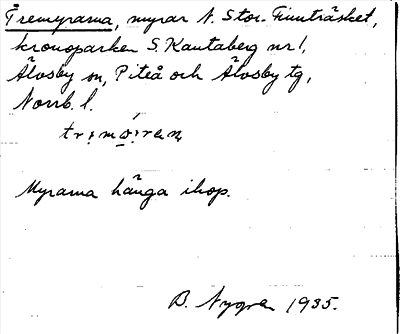 Tremyrarna, myrar N. Stor-Finnträsket,
kronoparken S. Kautaberg nr 1,
Älvsby sn, Piteå och Älvsby tg,
Norrb. l.
Myrarna hänga ihop.
B. Nygren 1935.